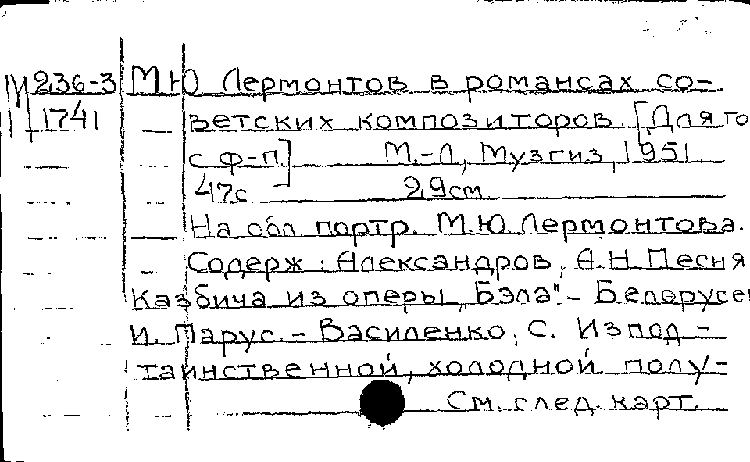 М 236-3 М.Ю. Лермонтов в романсах со-
1741 ветских композиторов. [Для го
с ф-п] М.-Л, Музгиз, 1951
47с 29см
На обл портр. М.Ю Лермонтова.
Содерж: Александров, А.Н. Песня
Казбича из оперы „Бэла". - Белорусе
И. Парус. - Василенко, С. Из под -
таинственной, холодной полу-
См. след. карт.